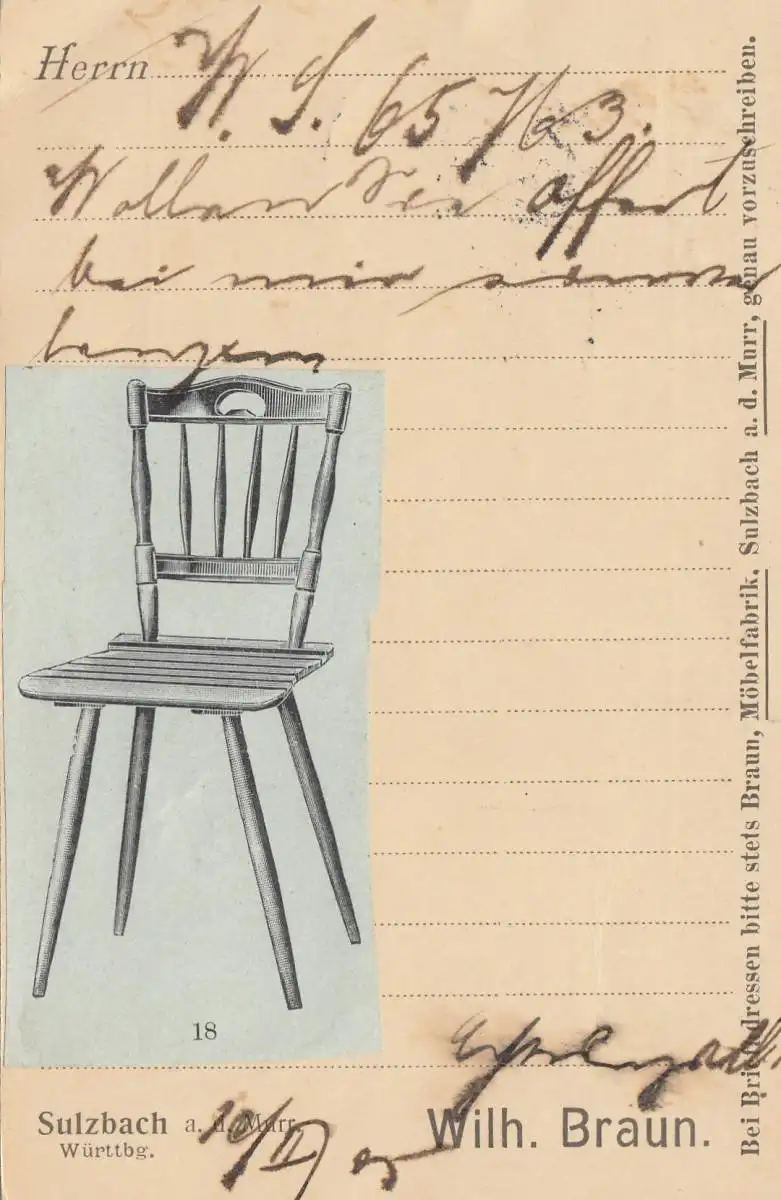 Herrn
W. S. 65763.
Wollen Sie Offert
bei mir
18
Sulzbach a. d. Murr
Württbg.
Wilh. Braun.
Bei Brief-Adressen bitte stets Braun, Möbelfabrik, Sulzbach a. d. Murr, genau vorzuschreiben.